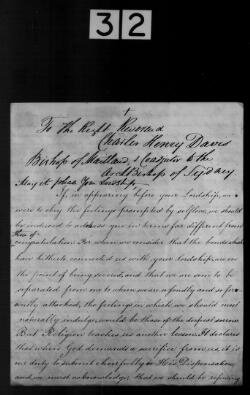 32
To the Right Reverend
Charles Henry Davis
Bishop of Maitland, & Coadjutor to the
Archbishop of Sydney
May it please Your Lordship
If, in appearing before your Lordship, we
were to obey the feelings prompted by selflove, we should
be induced to address you in terms far different from
those of
congratulation. For when we consider that the bonds which
have hitherto connected us with your Lordship, are on
the point of being severed, and that we are soon to be
separated from one to whom we are so fondly and so fer-
vently attached, the feelings in which we should most
naturally indulge, would be those of the deepest sorrow
But Religion teaches us another lesson. It declares
that when God demands a sacrifice from us, it is
our duty to submit cheerfully to His Dispensation,
and we must acknowledge that we should be refusing